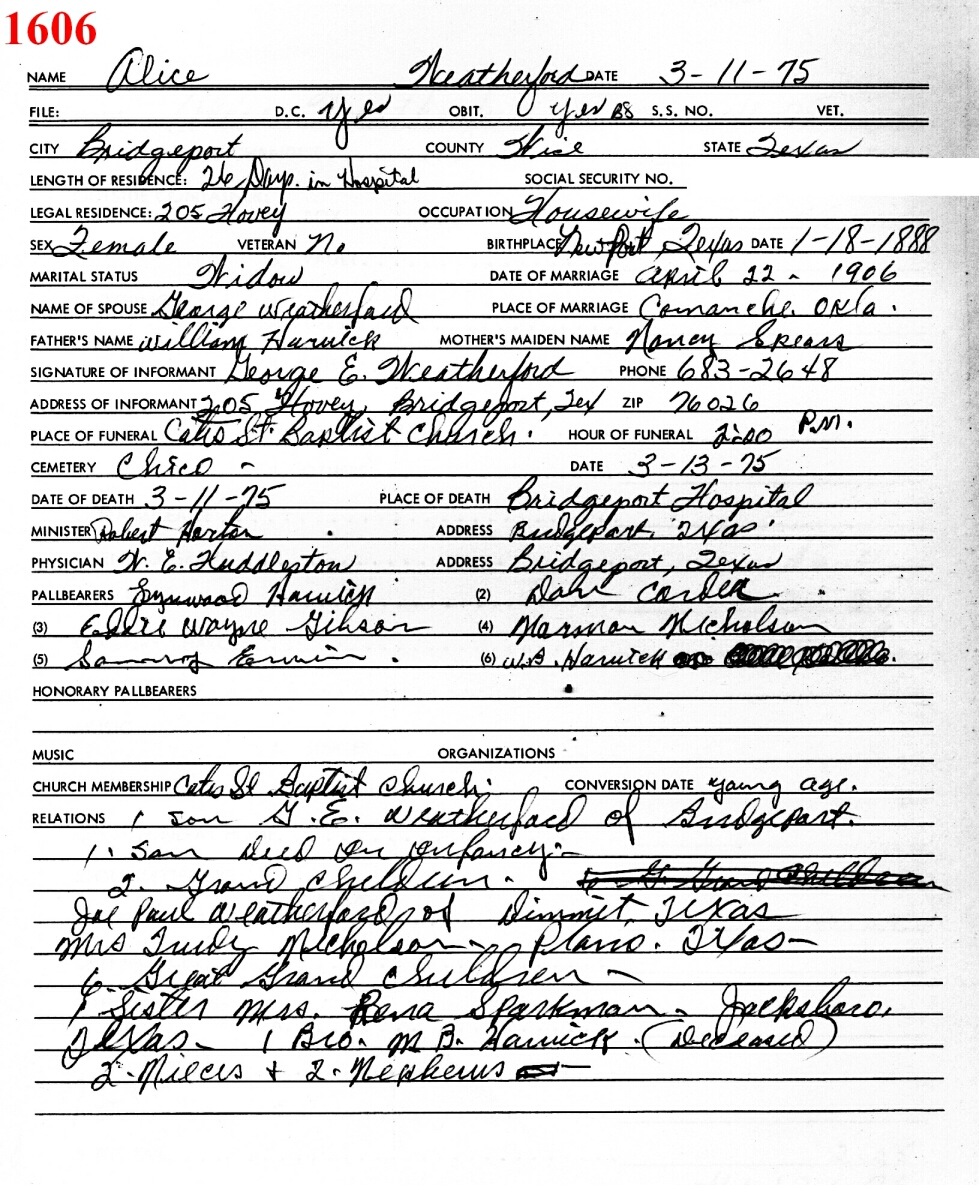 1606
NAME Alice Weatherford DATE 3-11-75
FILE: D.C. yes OBIT. yes BS S.S. NO. VET.
CITY Bridgeport COUNTY Wise STATE Texas
LENGTH OF RESIDENCE: 26 Days. in Hospital SOCIAL SECURITY NO.
LEGAL RESIDENCE: 205 Hovey OCCUPATION Housewife
SEX Female VETERAN No BIRTHPLACE Newport, Texas DATE 1-18-1888
MARITAL STATUS Widow DATE OF MARRIAGE April 22 - 1906
NAME OF SPOUSE George Weatherford PLACE OF MARRIAGE Comanche. Okla.
FATHER'S NAME William Harwick MOTHER'S MAIDEN NAME Nancy Spears
SIGNATURE OF INFORMANT George E. Weatherford PHONE 683-2648
ADDRESS OF INFORMANT 205 Hovey, Bridgeport, Tex ZIP 76026
PLACE OF FUNERAL Cates St. Baptist Church. HOUR OF FUNERAL 2:00 P.M.
CEMETERY Chico - DATE 3-13-75
DATE OF DEATH 3-11-75 PLACE OF DEATH Bridgeport Hospital
MINISTER Robert Horton ADDRESS Bridgeport, Texas
PHYSICIAN W. E. Huddleston ADDRESS Bridgeport, Texas
PALLBEARERS Lynwood Harwick (2) Dale Corder
(3) Eddie Wayne Gibson (4) Marman Nicholson
(5) Sammy Erwin. (6) W.B. Harwick
HONORARY PALLBEARERS
MUSIC ORGANIZATIONS -
CHURCH MEMBERSHIP Cates St Baptist Church. CONVERSION DATE young age.
RELATIONS 1 son G. E. Weatherford of Bridgeport.
1. son died in infancy.-
2. Grand Children. - G. Grand Children
Joe Paul Weatherford of Dimmit, Texas
Mrs Trudy Nicholson - Plano. Texas -
6. Great Grand Children -
1 Sister Mrs. Rena Sparkman - Jacksboro,
Texas - 1 Bro. M. B. Harwick. (Deceased)
2-Nieces + 2-Nephews